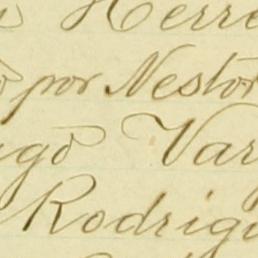 Herre
por Nestor
Var
Rodrig